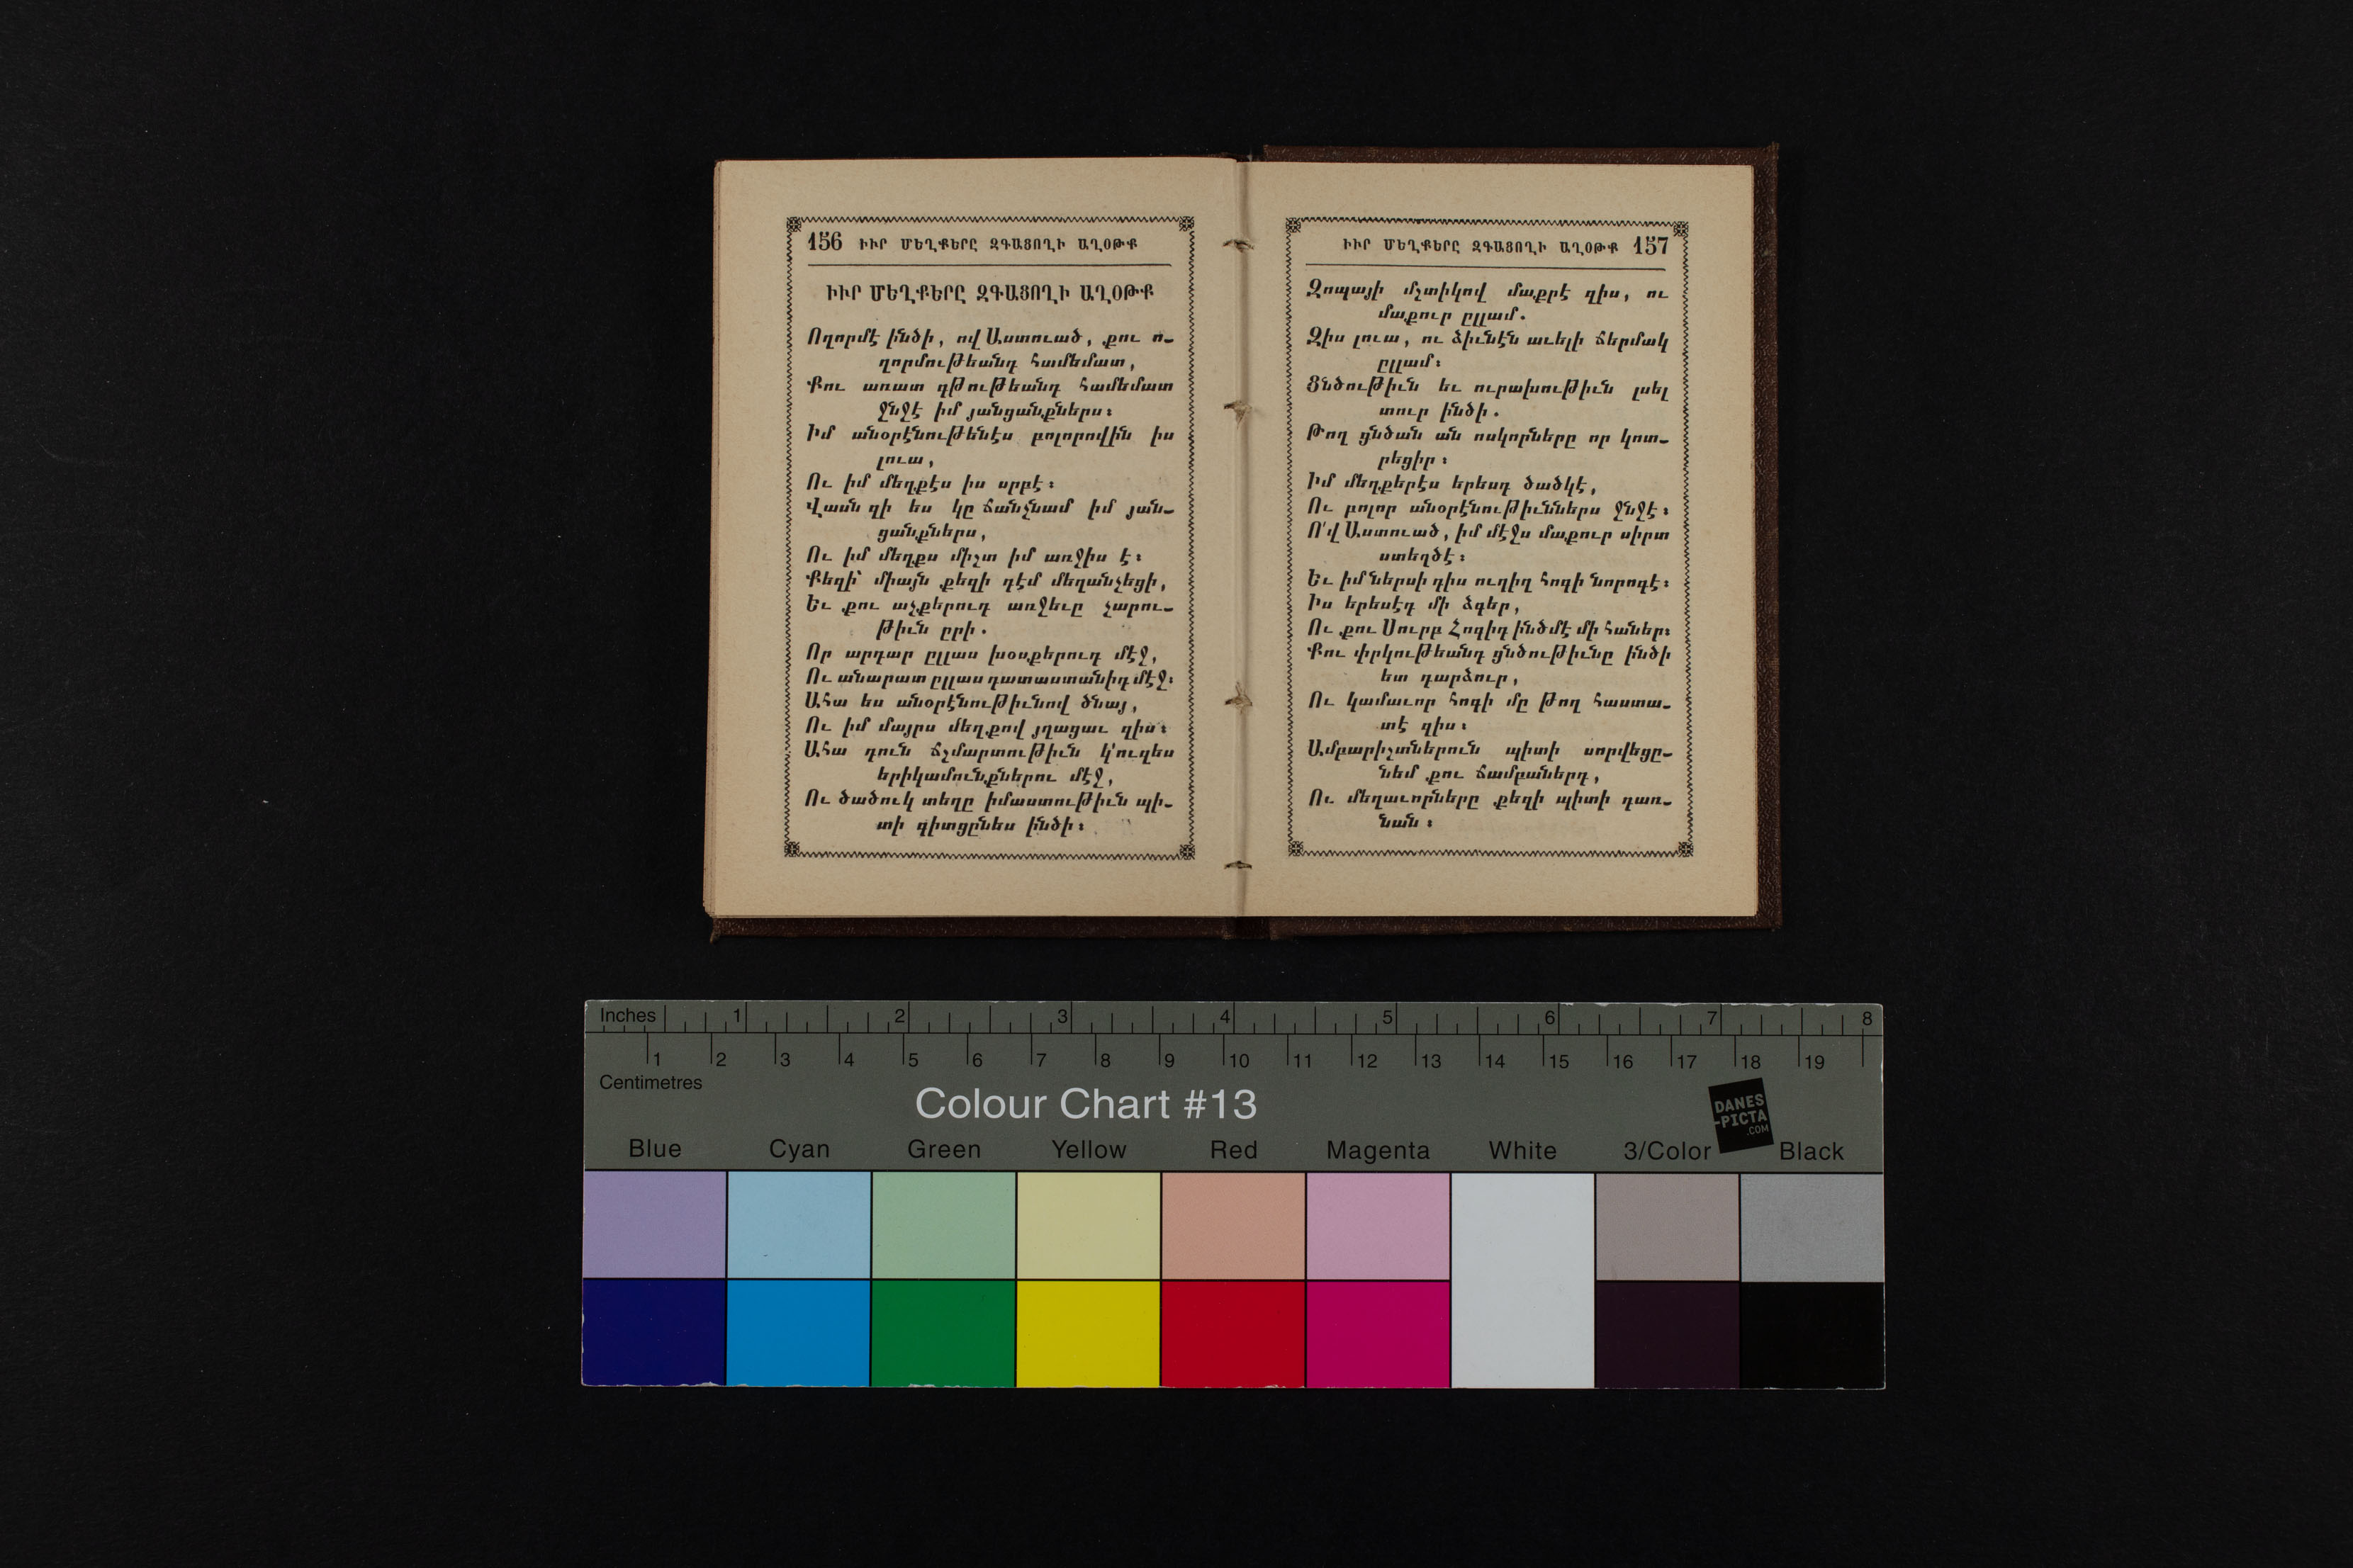 156 ԻՒՐ ՄԵՂՔԵՐԸ ԶԳԱՑՈՂԻ ԱՂՕԹՔ
ԻՒՐ ՄԵՂՔԵՐԸ ԶԳԱՑՈՂԻ ԱՂՕԹՔ
Ողորմէ՛ ինծի, ով Աստուած, քու ո-
ղորմութեանդ համեմատ,
Քու առատ գթութեանդ համեմատ
ջնջէ իմ յանցանքներս։
Իմ անօրէնութենէս բոլորովին իս
լուա,
Ու իմ մեղքէս իս սրբէ։
Վասն զի ես կը ճանչնամ իմ յան-
ցանքներս,
Ու իմ մեղքս միշտ իմ առջիս է։
Քեզի՝ միայն քեզի դէմ մեղանչեցի,
Եւ քու աչքերուդ առջեւը չարու-
թիւն ըրի.
Որ արդար ըլլաս խօսքերուդ մէջ,
Ու անարատ ըլլաս դատաստանիդ մէջ։
Ահա ես անօրէնութիւնով ծնայ,
Ու իմ մայրս մեղքով յղացաւ զիս։
Ահա դուն ճշմարտութիւն կ'ուզես
երիկամունքներու մէջ,
Ու ծածուկ տեղը իմաստութիւն պի-
տի գիտցընես ինծի։
ԻՒՐ ՄԵՂՔԵՐԸ ԶԳԱՑՈՂԻ ԱՂՕԹՔ 157
Զոպայի մշտիկով մաքրէ զիս, ու
մաքուր ըլլամ.
Զիս լուա, ու ձիւնէն աւելի ճերմակ
ըլլամ։
Ցնծութիւն եւ ուրախութիւն լսել
տուր ինծի.
Թող ցնծան ան ոսկորները որ կոտ-
րեցիր։
Իմ մեղքերէս երեսդ ծածկէ,
Ու բոլոր անօրէնութիւններս ջնջէ։
Ո՛վ Աստուած, իմ մէջս մաքուր սիրտ
ստեղծէ։
Եւ իմ ներսի դիս ուղիղ հոգի նորոգէ։
Իս երեսէդ մի ձգեր,
Ու քու Սուրբ Հոգիդ ինձմէ մի հաներ։
Քու փրկութեանդ ցնծութիւնը ինծի
ետ դարձուր,
Ու կամաւոր հոգի մը թող հաստա-
տէ զիս։
Ամբարիշտներուն պիտի սորվեցը-
նեմ քու ճամբաներդ,
Ու մեղաւորները քեզի պիտի դառ-
նան։
Inches 1 2 3 4 5 6 7 8
1 2 3 4 5 6 7 8 9 10 11 12 13 14 15 16 17 18 19
Centimetres
Colour Chart #13
DANES
-PICTA
.COM
Blue Cyan Green Yellow Red Magenta White 3/Color Black